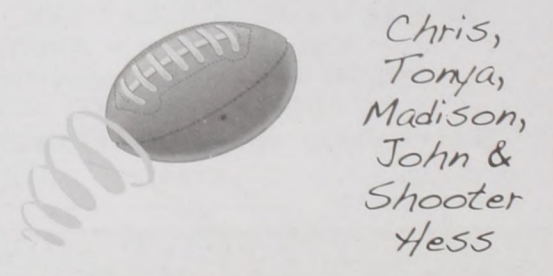 Chris,
Tonya,
Madison,
John &
Shooter
Hess